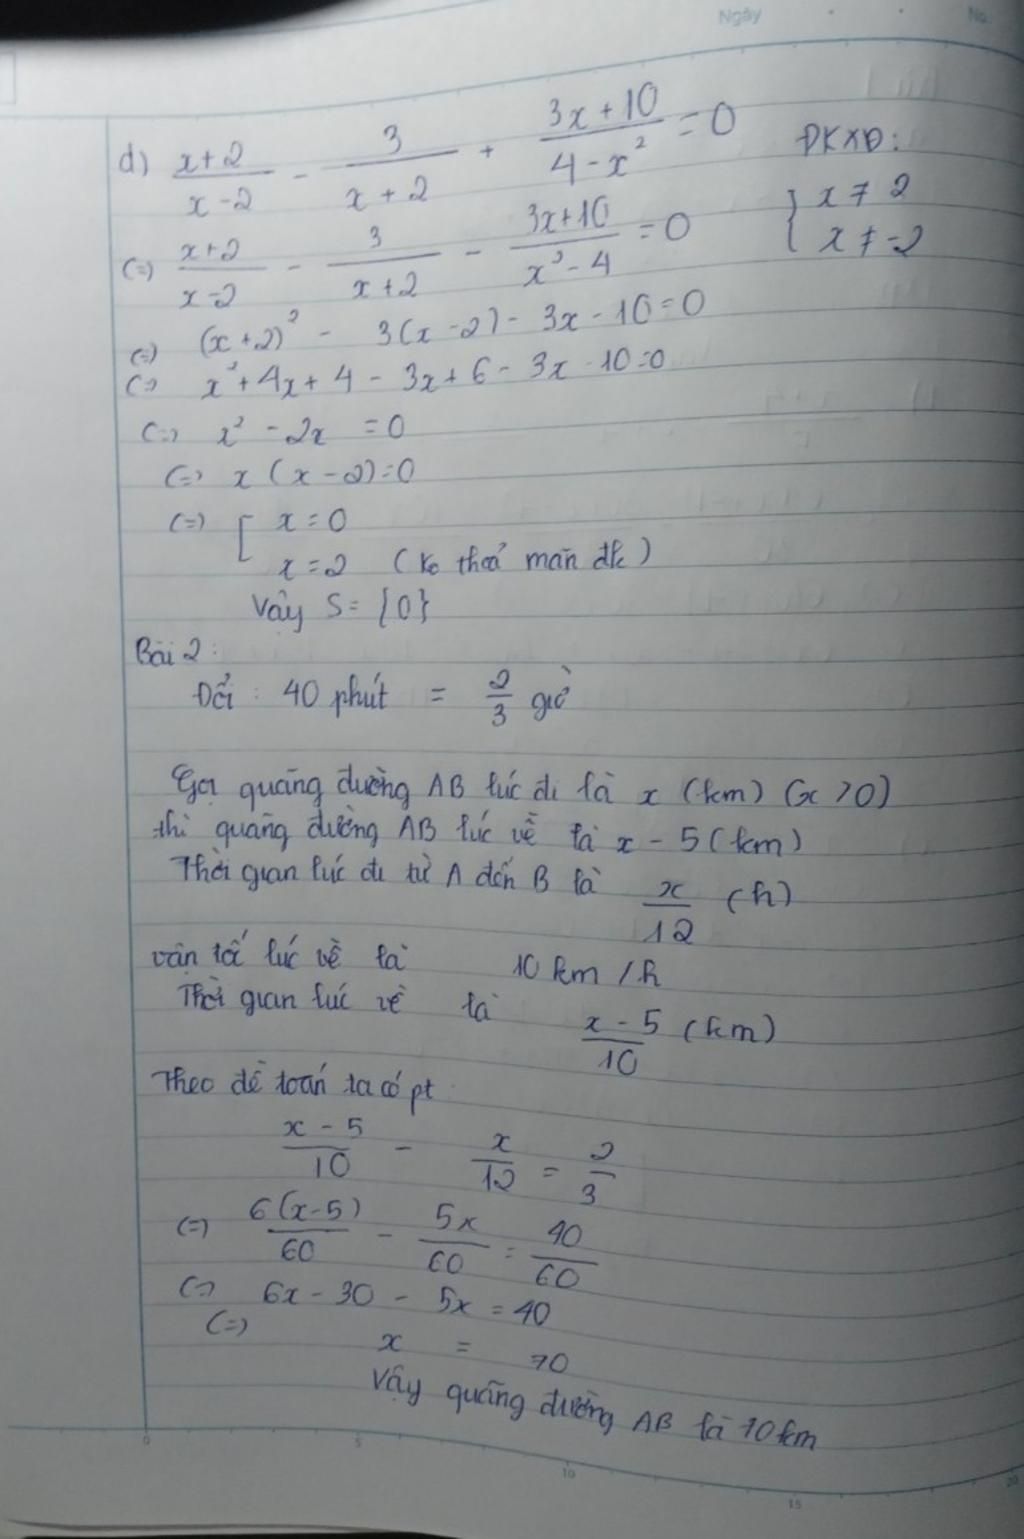 Ngày
No.
d) \frac{x+2}{x-2} - \frac{3}{x+2} + \frac{3x+10}{4-x^2} = 0 ĐKXĐ:
(=) \frac{x+2}{x-2} - \frac{3}{x+2} - \frac{3x+10}{x^2-4} = 0 { x ≠ 2
x ≠ -2
(=) (x+2)^2 - 3(x-2) - 3x - 10 = 0
(=) x^2 + 4x + 4 - 3x + 6 - 3x - 10 = 0
(=) x^2 - 2x = 0
(=) x (x-2) = 0
(=) [ x = 0
x = 2 (ko thoả mãn đk)
Vậy S = {0}
Bài 2:
Đổi : 40 phút = \frac{2}{3} giờ
Gọi quãng đường AB lúc đi là x (km) (x > 0)
thì quãng đường AB lúc về là x - 5 (km)
Thời gian lúc đi từ A đến B là \frac{x}{12} (h)
vận tố lúc về là 10 km/h
Thời gian lúc về là \frac{x-5}{10} (km)
Theo đề toán ta có pt
\frac{x-5}{10} - \frac{x}{12} = \frac{2}{3}
(=) \frac{6(x-5)}{60} - \frac{5x}{60} = \frac{40}{60}
(=) 6x - 30 - 5x = 40
(=) x = 70
Vậy quãng đường AB là 70 km
0 5 10 15 20